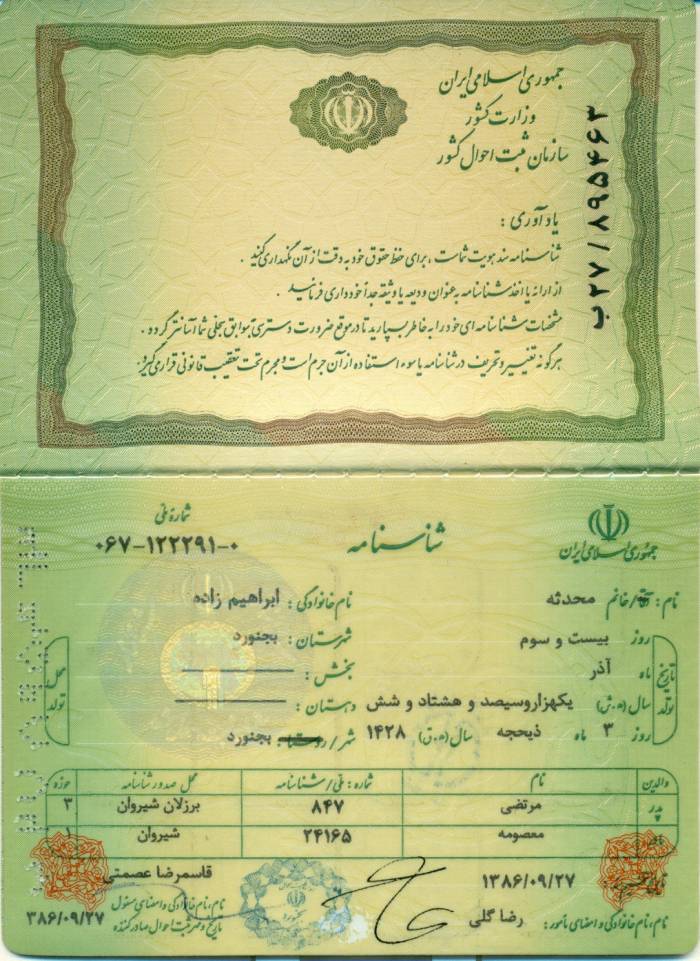 جمهوری اسلامی ایران
وزارت کشور
سازمان ثبت احوال کشور
ب۲۷/۸۹۵۴۶۳
یادآوری :
شناسنامه سند هویت شماست ، برای حفظ حقوق خود به دقت از آن نگهداری کنید .
از ارائه یا اخذ شناسنامه به عنوان ودیعه یا وثیقه جداً خودداری فرمائید .
مشخصات شناسنامه ای خود را به خاطر بسپارید تا در موقع ضرورت دسترسی به سوابق سجلی شما آسانتر گردد .
هرگونه تغییر و تحریف در شناسنامه یا سوء استفاده از آن جرم است و مجرم تحت تعقیب قانونی قرار می گیرد .
جمهوری اسلامی ایران
شناسنامه
شماره ملی
۰۶۷-۱۲۲۲۹۱-۰
نام : آقا/خانم محدثه
نام خانوادگی : ابراهیم زاده
تاریخ تولد
روز بیست و سوم
ماه آذر
سال (ه.ش) یکهزاروسیصد و هشتاد و شش
روز ۳ ماه ذیحجه سال (ه.ق) ۱۴۲۸
محل تولد
شهرستان : بجنورد
بخش :
دهستان :
شهر/روستا : بجنورد
والدین نام شماره : ملی/شناسنامه محل صدور شناسنامه حوزه
پدر مرتضی ۸۴۷ برزلان شیروان ۳
مادر معصومه ۲۴۱۶۵ شیروان
۱۳۸۶/۰۹/۲۷
نام، نام خانوادگی و امضای مأمور : رضا گلی
قاسمرضا عصمتی
نام، نام خانوادگی و امضای مسئول
تاریخ و مهر ثبت احوال صادرکننده
۳۸۶/۰۹/۲۷